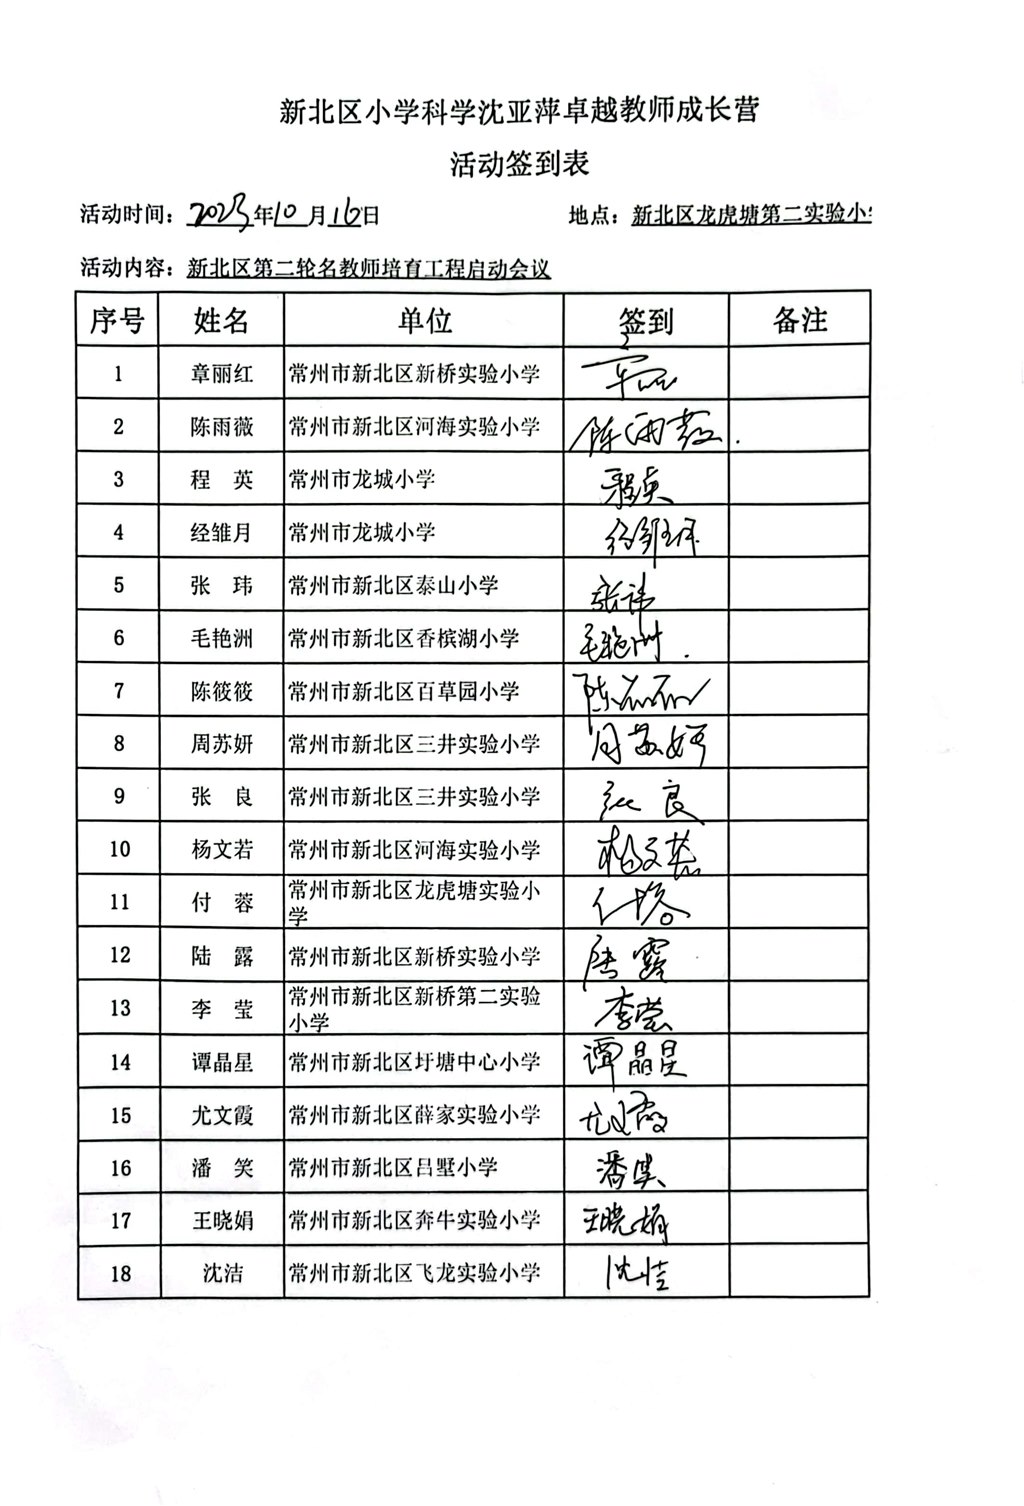 新北区小学科学沈亚萍卓越教师成长营
活动签到表
活动时间：2023年10月16日 地点：新北区龙虎塘第二实验小
活动内容：新北区第二轮名教师培育工程启动会议
序号 姓名 单位 签到 备注
1 章丽红 常州市新北区新桥实验小学
2 陈雨薇 常州市新北区河海实验小学 陈雨薇.
3 程 英 常州市龙城小学 程英
4 经雏月 常州市龙城小学 经雏月
5 张 玮 常州市新北区泰山小学 张玮
6 毛艳洲 常州市新北区香槟湖小学 毛艳洲.
7 陈筱筱 常州市新北区百草园小学 陈筱筱
8 周苏妍 常州市新北区三井实验小学 周苏妍
9 张 良 常州市新北区三井实验小学 张良
10 杨文若 常州市新北区河海实验小学 杨文若
11 付 蓉 常州市新北区龙虎塘实验小 付蓉
学
12 陆 露 常州市新北区新桥实验小学 陆露
13 李 莹 常州市新北区新桥第二实验 李莹
小学
14 谭晶星 常州市新北区圩塘中心小学 谭晶星
15 尤文霞 常州市新北区薛家实验小学 尤文霞
16 潘 笑 常州市新北区吕墅小学 潘笑
17 王晓娟 常州市新北区奔牛实验小学 王晓娟
18 沈洁 常州市新北区飞龙实验小学 沈洁